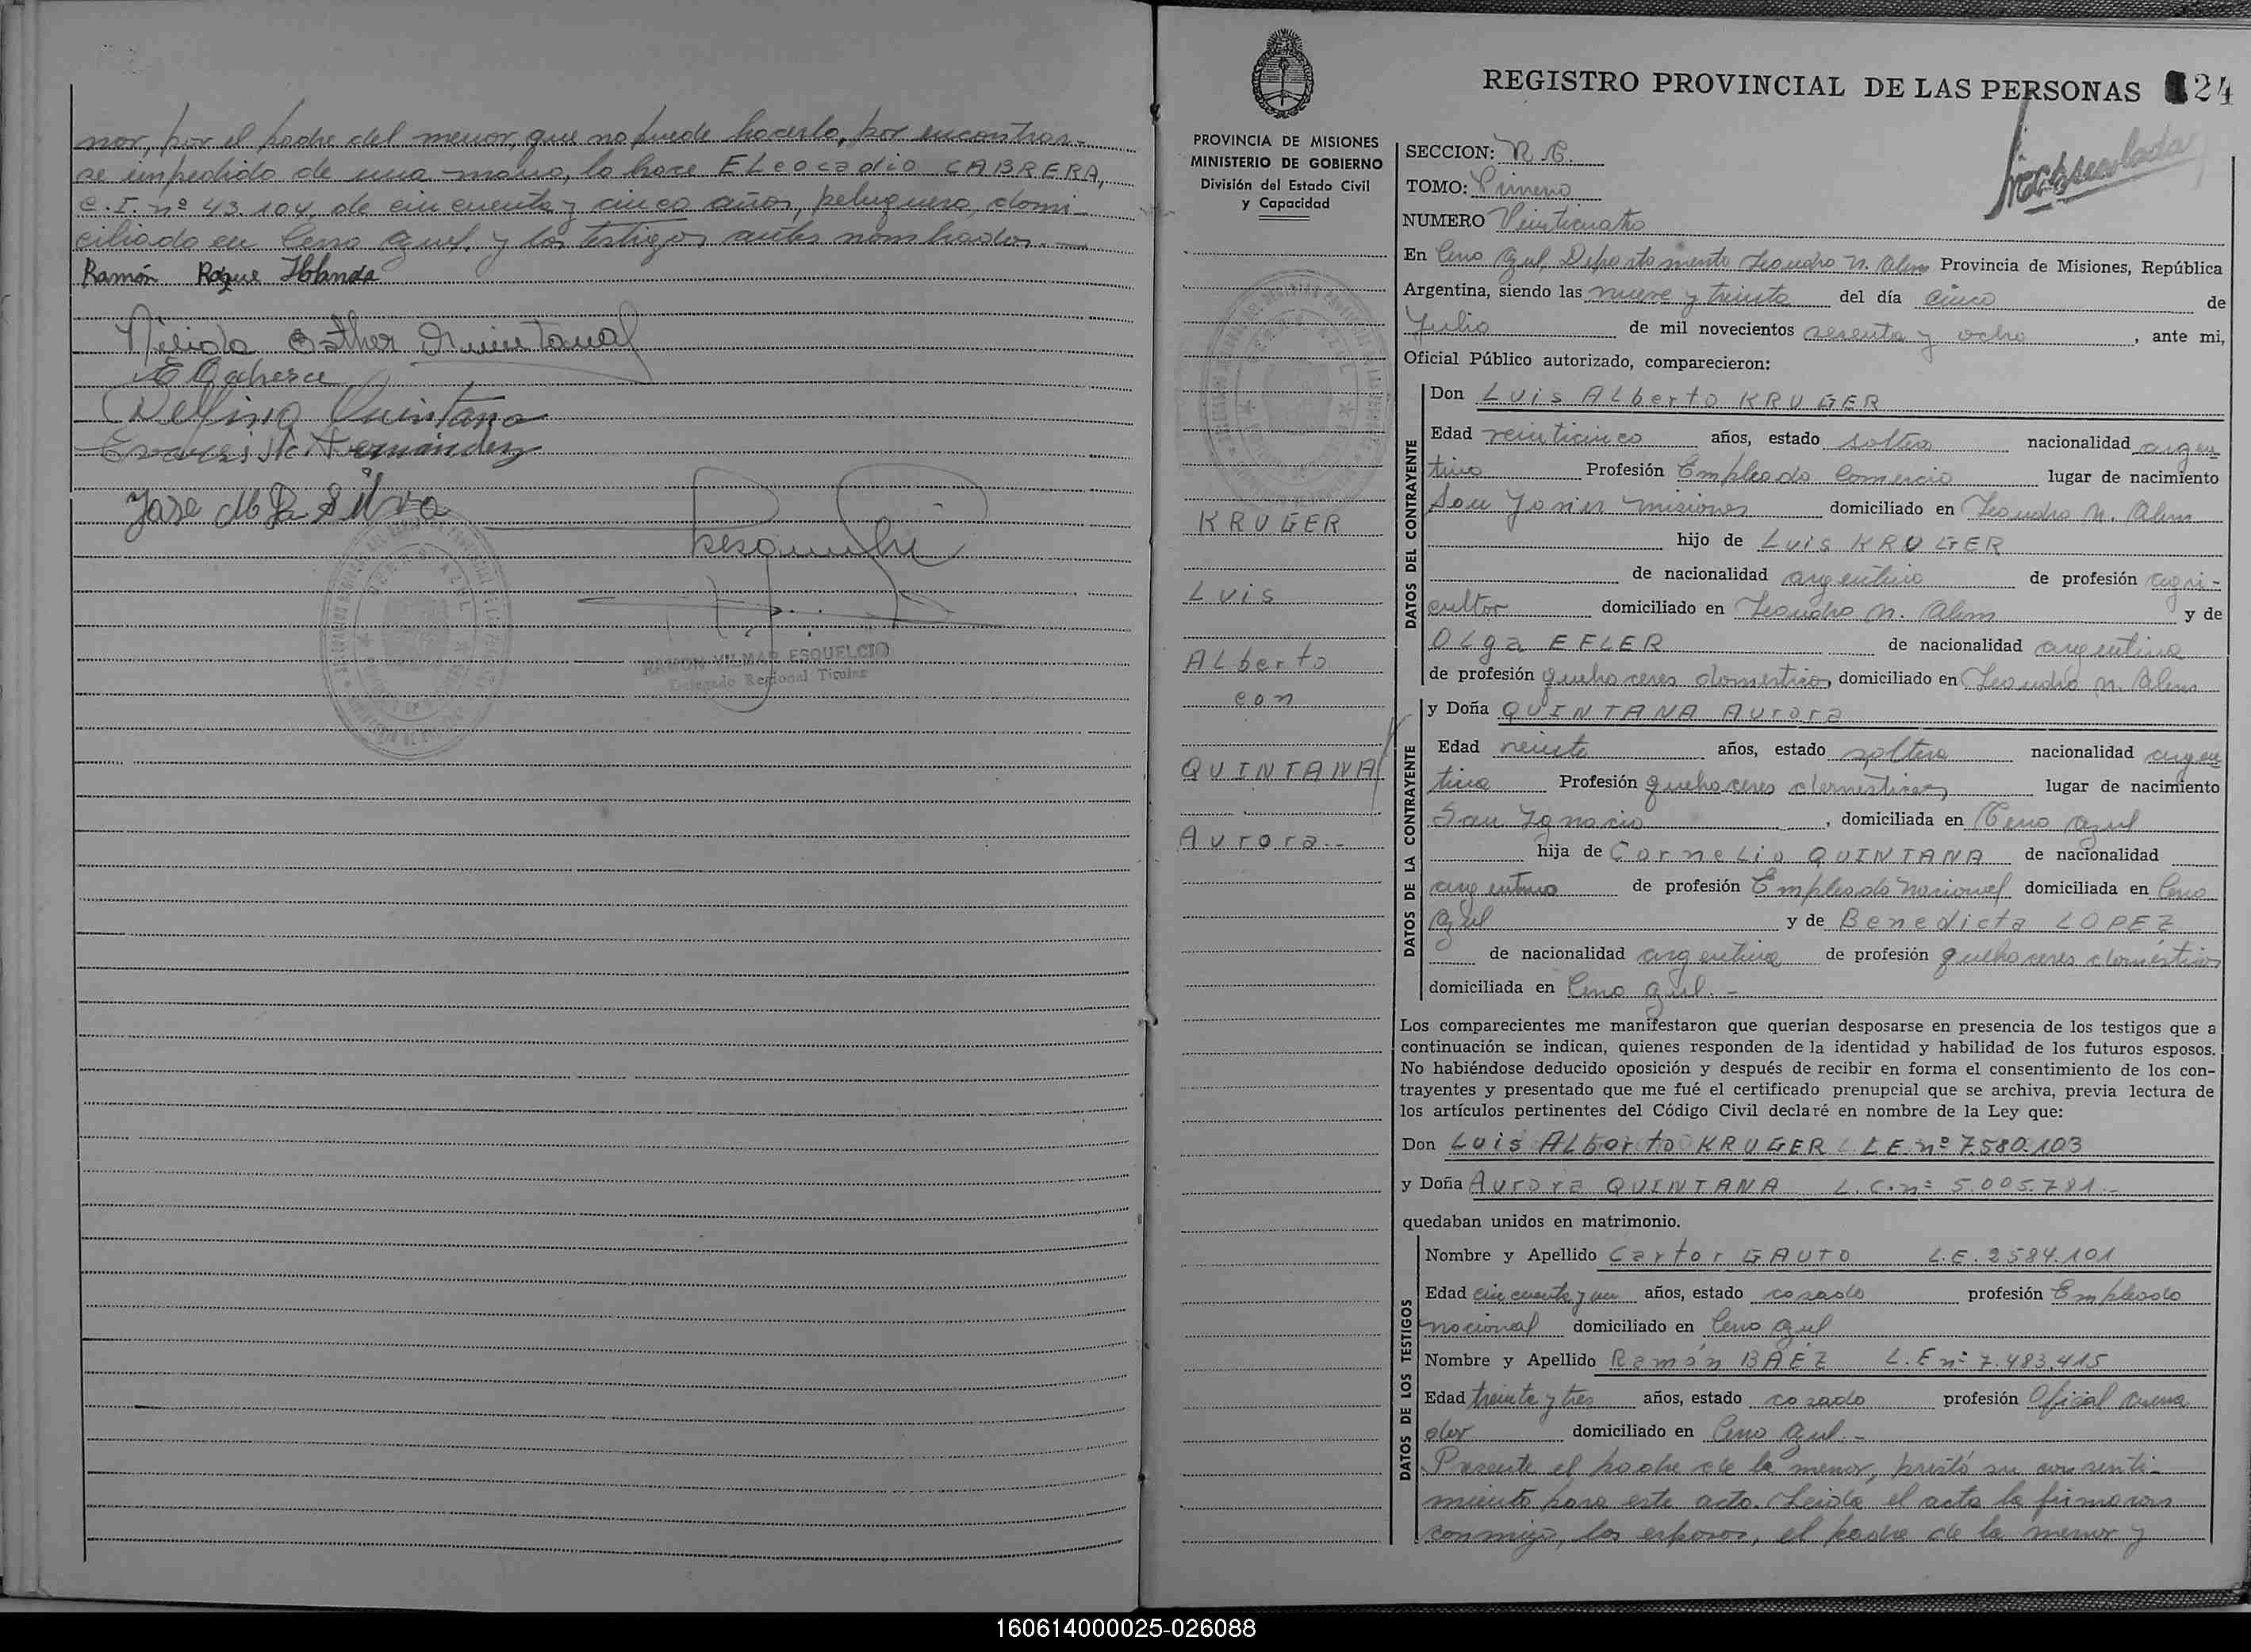 nor, por el padre del menor, que no puede hacerlo, por encontrar-
se impedido de una mano, lo hace ELeocadio CABRERA,
C.I. nº 43.104, de cincuenta y cinco años, peluquero, domi-
ciliado en Cerro Azul, y los testigos antes nombrados.-
Ramón Roque
Nélida Esther Quintana
Delfino Quintana
Evaristo Fernández
Jose M Da Silva
RAMON VILMAR ESQUELCIO
Delegado Regional Titular
REGISTRO PROVINCIAL DE LAS PERSONAS 24
PROVINCIA DE MISIONES
MINISTERIO DE GOBIERNO
División del Estado Civil
y Capacidad
KRUGER
Luis
ALberto
con
QUINTANA
Aurora.-
SECCION:
TOMO: Primero
NUMERO Veinticuatro
En Cerro Azul, Departamento Leandro N. Alem Provincia de Misiones, República
Argentina, siendo las nueve y treinta del día cinco de
Julio de mil novecientos sesenta y ocho, ante mi,
Oficial Público autorizado, comparecieron:
DATOS DEL CONTRAYENTE
Don Luis ALberto KRUGER
Edad veinticinco años, estado soltero nacionalidad argen
tino Profesión Empleado Comercio lugar de nacimiento
San Javier Misiones domiciliado en Leandro N. Alem
hijo de Luis KRUGER
de nacionalidad argentino de profesión agri-
cultor domiciliado en Leandro N. Alem y de
OLga EFLER de nacionalidad argentina
de profesión quehaceres domésticos, domiciliado en Leandro N. Alem
DATOS DE LA CONTRAYENTE
y Doña QUINTANA Aurora
Edad veinte años, estado soltera nacionalidad argen
tina Profesión quehaceres domésticos lugar de nacimiento
San Ignacio, domiciliada en Cerro Azul
hija de CorneLio QUINTANA de nacionalidad
argentino de profesión Empleado Nacional domiciliada en Cerro
Azul y de Benedicta LOPEZ
de nacionalidad argentina de profesión quehaceres domésticos
domiciliada en Cerro Azul.-
Los comparecientes me manifestaron que querían desposarse en presencia de los testigos que a
continuación se indican, quienes responden de la identidad y habilidad de los futuros esposos.
No habiéndose deducido oposición y después de recibir en forma el consentimiento de los con-
trayentes y presentado que me fué el certificado prenupcial que se archiva, previa lectura de
los artículos pertinentes del Código Civil declaré en nombre de la Ley que:
Don Luis ALberto KRUGER L.E. nº 7.580.103
y Doña Aurora QUINTANA L.C. nº 5.005.781.-
quedaban unidos en matrimonio.
DATOS DE LOS TESTIGOS
Nombre y Apellido Cartor GAUTO L.E. 2584.101
Edad cincuenta y un años, estado casado profesión Empleado
nacional domiciliado en Cerro Azul
Nombre y Apellido Ramón BAEZ L.E nº 7.483.415
Edad treinta y tres años, estado casado profesión Oficial
domiciliado en Cerro Azul.-
Presente el padre de la menor, prestó su consenti-
miento para este acto. Leída el acta la firmaron
conmigo, los esposos, el padre de la menor y
160614000025-026088